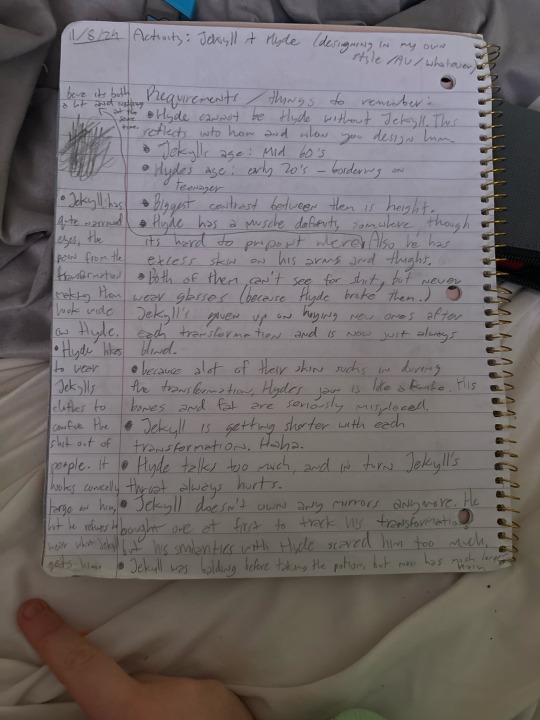 11/8/24 Activity: Jekyll + Hyde (designing in my own
style / AU / whatever)
Requirements / things to remember:
• Hyde cannot be Hyde without Jekyll. This
reflects into how and how you design him.
• Jekylls age: Mid 60's
• Hydes age: early 20's - bordering on
teenager
• Biggest contrast between them is height.
• Hyde has a muscle deficits, somewhere though
its hard to pinpoint where. Also he has
excess skin on his arms and thighs.
• Both of them can't see for shit, but never
wear glasses (because Hyde broke them.)
Jekyll's given up on buying new ones after
each transformation and is now just always
blind.
• because alot of their skin sucks in during
the transformation, Hydes jaw is like a His
bones and fat are seriously misplaced.
• Jekyll is getting shorter with each
transformation. Haha.
• Hyde talks too much, and in turn Jekyll's
throat always hurts.
• Jekyll doesn't own any mirrors anymore. He
bought one at first to track his transformation
but his similarities with Hyde scared him too much.
• Jekyll was balding before taking the potion, but now has much larger
hair
here its both
a lot and nothing
at the
same time.
• Jekyll has
quite narrow
eyes, the
pain from the
transformation
making them
look wide
on Hyde.
• Hyde likes
to wear
Jekylls
clothes to
confuse the
shit out of
people. It
looks comically
large on him,
but he refuses to
wear what Jekyll
gets him